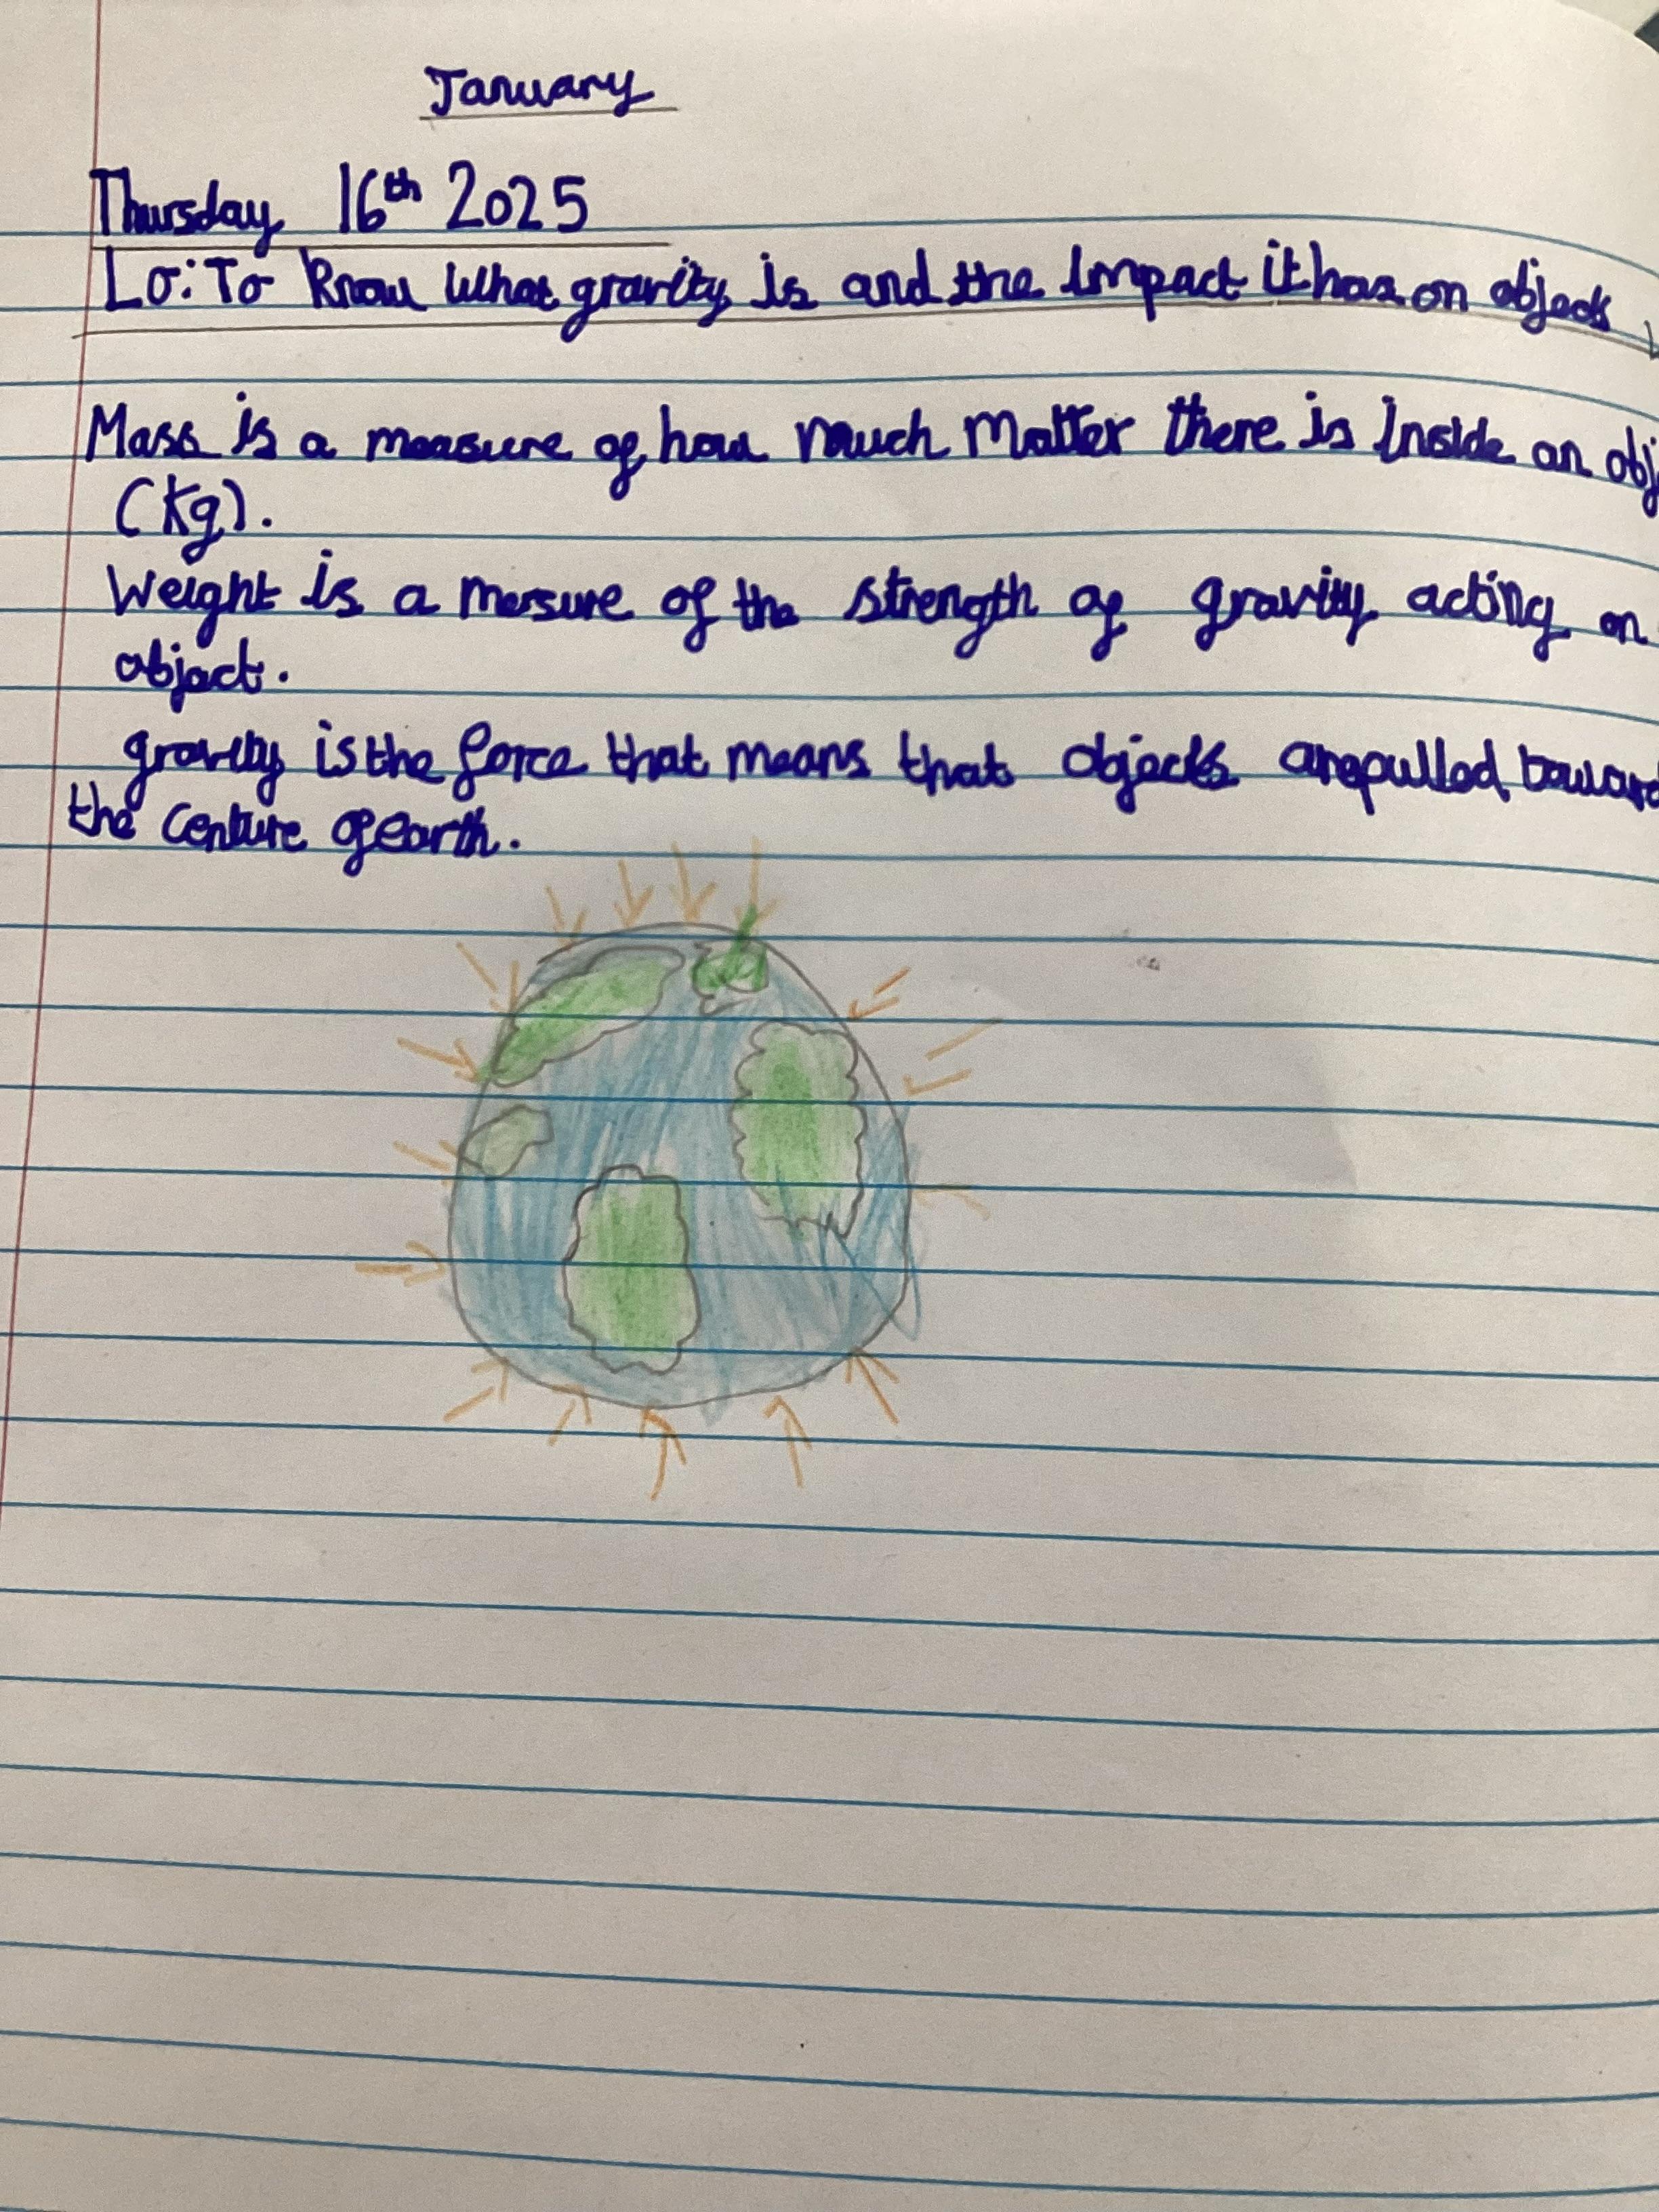 January
Thursday 16th 2025
Lo: To Know What gravity is and the Impact it has on objects
Mass is a measure of how much Matter there is Inside an obj
(Kg).
Weight is a mesure of the strength of gravity acting on
object.
gravity is the force that means that objects are pulled toward
the centure of earth.